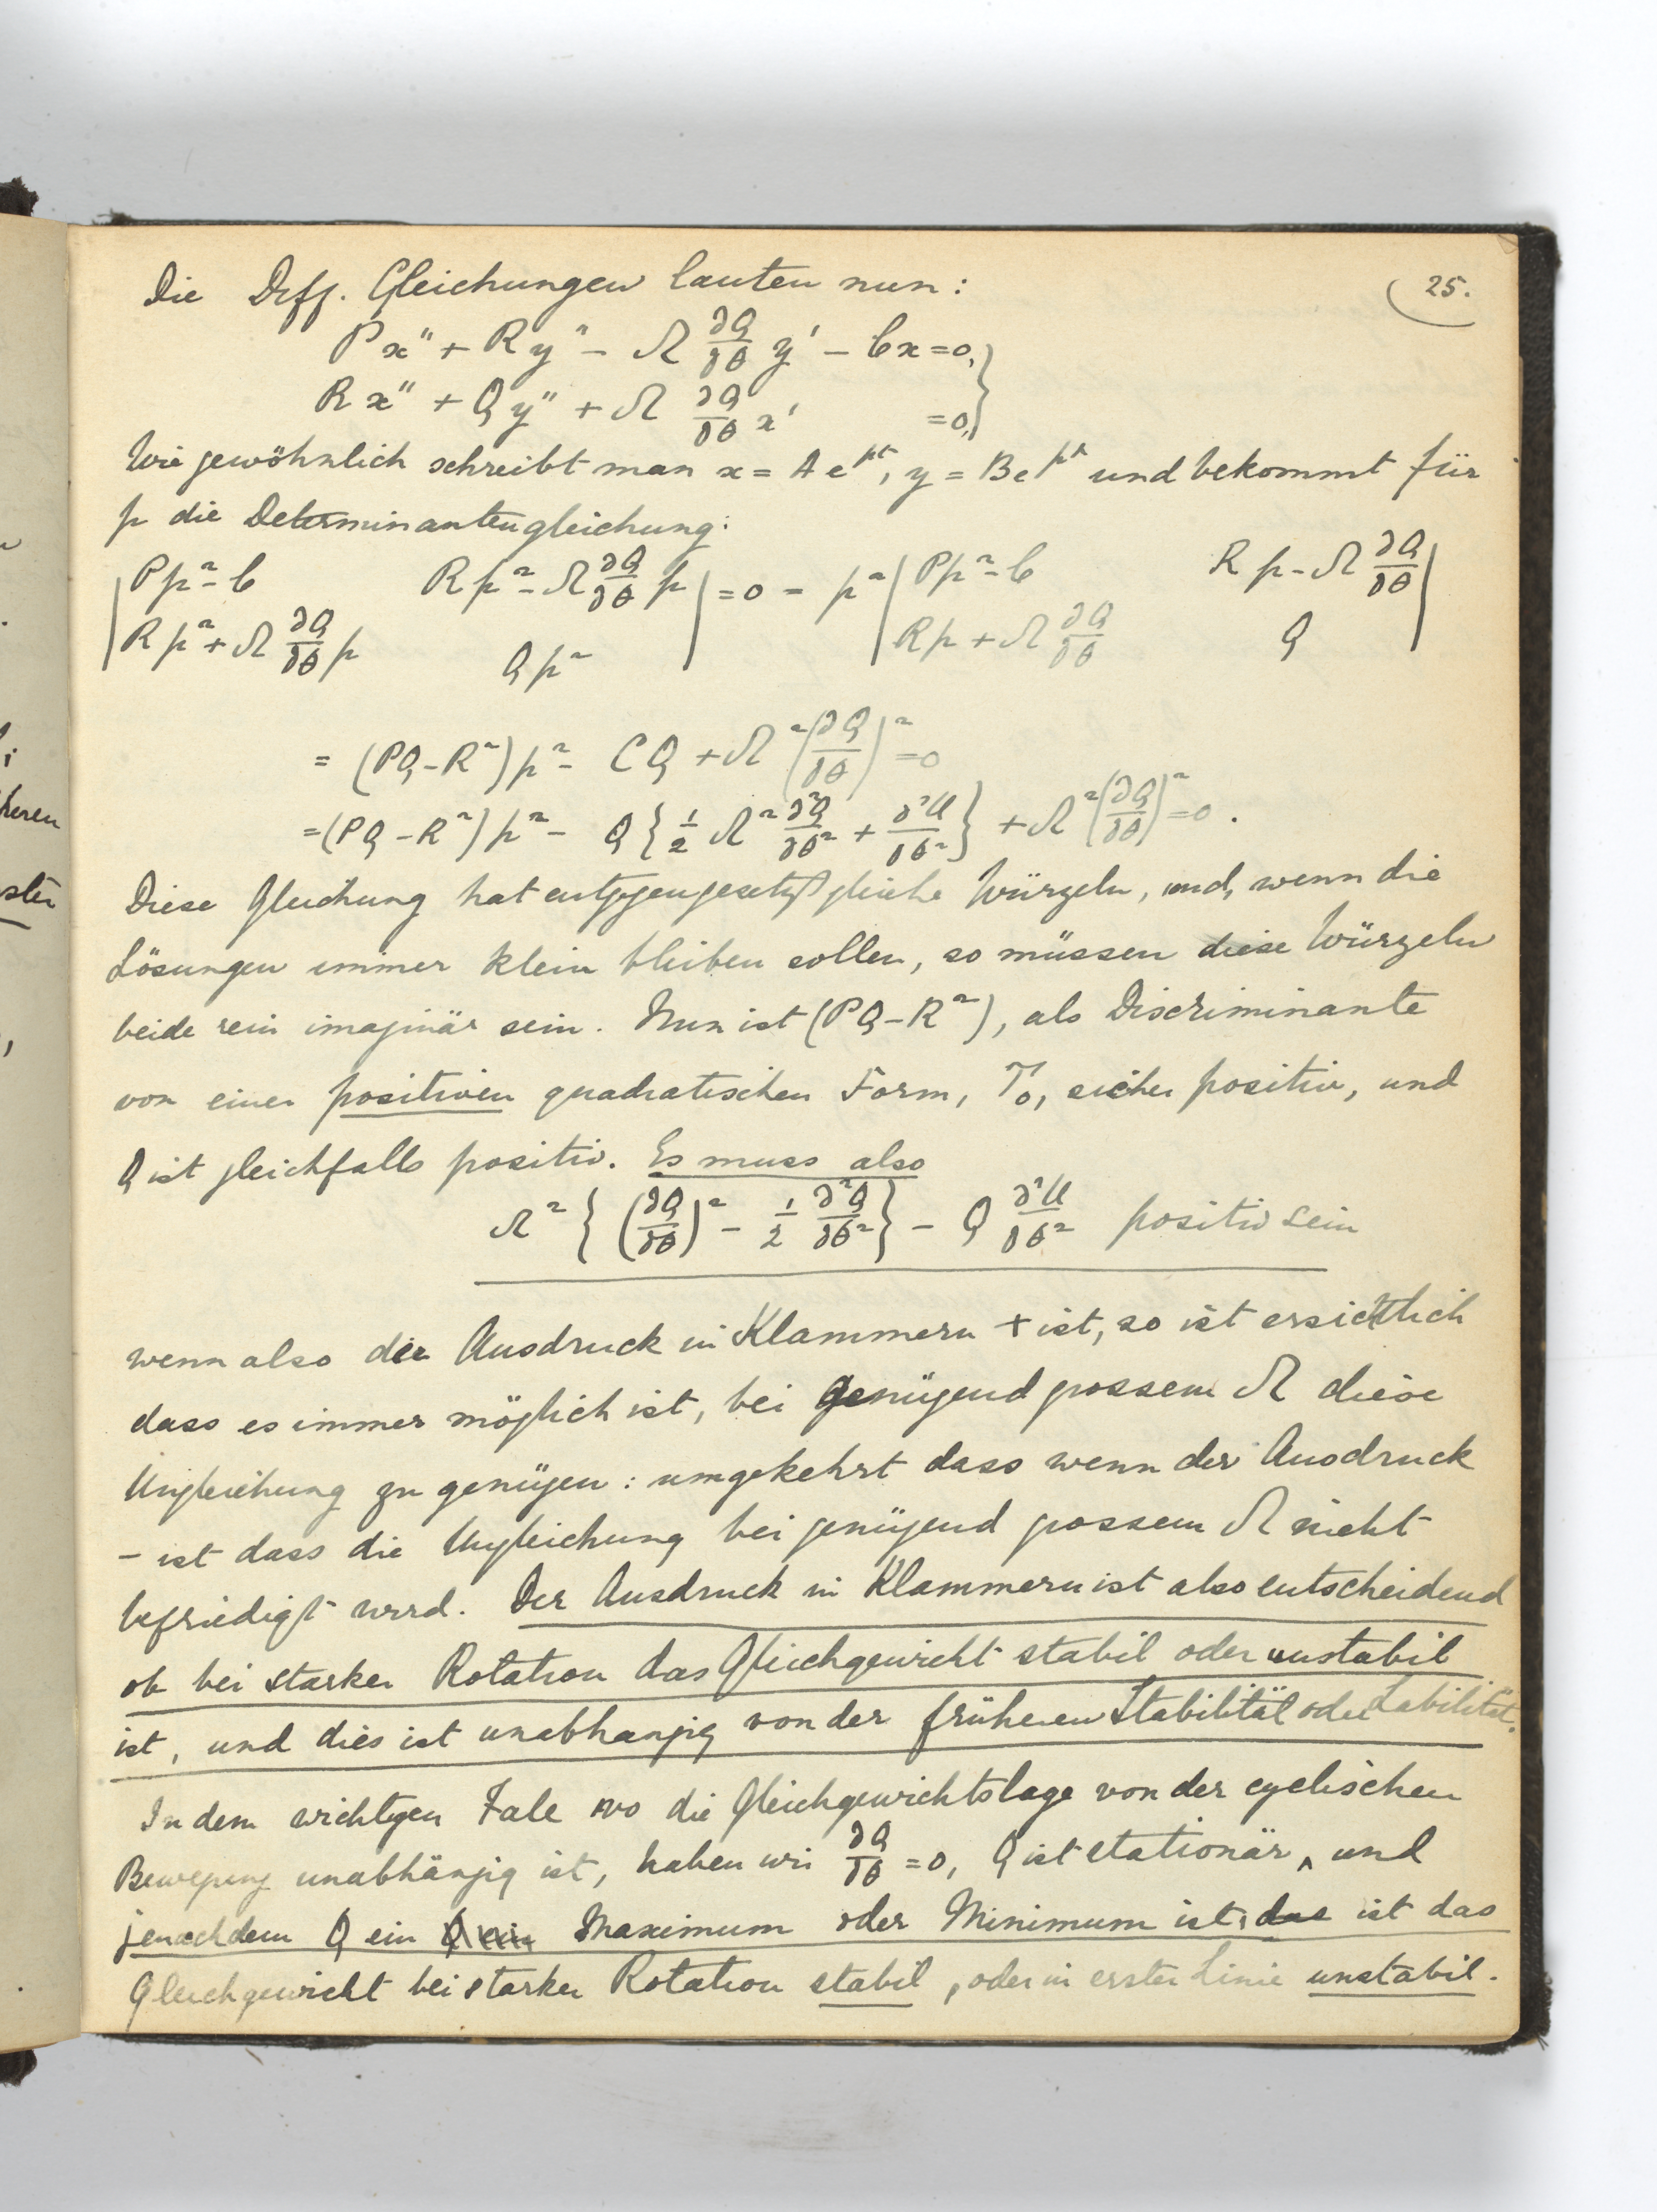 25.
Die Diff. Gleichungen lauten nun:
P x'' + R y'' - Ω ∂Q/∂θ y' - C x = 0,
R x'' + Q y'' + Ω ∂Q/∂θ x' = 0,
Wie gewöhnlich schreibt man x = A e^{pt}, y = B e^{pt} und bekommt für
p die Determinantengleichung:
| Pp² - C   Rp² - Ω ∂Q/∂θ p | = 0 = p² | Pp² - C   Rp - Ω ∂Q/∂θ |
| Rp² + Ω ∂Q/∂θ p   Qp² |   | Rp + Ω ∂Q/∂θ   Q |
= (PQ - R²) p² - CQ + Ω² (∂Q/∂θ)² = 0
= (PQ - R²) p² - Q { 1/2 Ω² ∂²Q/∂θ² + ∂²U/∂θ² } + Ω² (∂Q/∂θ)² = 0.
Diese Gleichung hat entgegengesetzt gleiche Würzeln, und, wenn die
Lösungen immer klein bleiben sollen, so müssen diese Würzeln
beide rein imaginär sein. Nun ist (PQ - R²), als Discriminante
von einer positiven quadratischen Form, T₀, sicher positiv, und
Q ist gleichfalls positiv. Es muss also
Ω² { (∂Q/∂θ)² - 1/2 ∂²Q/∂θ² } - Q ∂²U/∂θ² positiv sein
wenn also der Ausdruck in Klammern + ist, so ist ersichtlich
dass es immer möglich ist, bei genügend grossem Ω diese
Ungleichung zu genügen: umgekehrt dass wenn der Ausdruck
- ist dass die Ungleichung bei genügend grossem Ω nicht
befriedigt wird. Der Ausdruck in Klammern ist also entscheidend
ob bei starker Rotation das Gleichgewicht stabil oder unstabil
ist, und dies ist unabhangig von der früheren Stabilität oder Labilität.
In dem wichtigen Fale wo die Gleichgewichtslage von der cyclischen
Bewegung unabhängig ist, haben wir ∂Q/∂θ = 0, Q ist stationär, und
jenachdem Q ein Q ein Maximum oder Minimum ist, das ist das
Gleichgewicht bei starker Rotation stabil, oder in erster Linie unstabil.